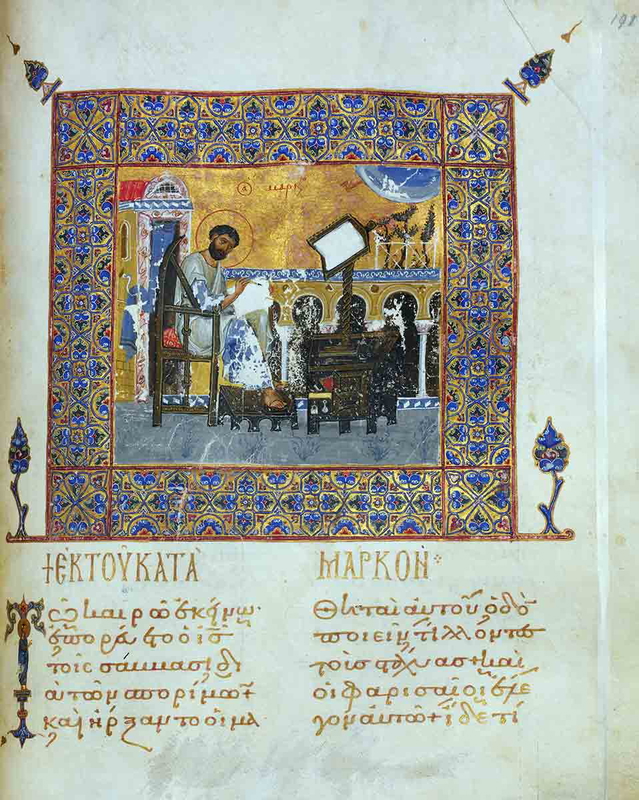 + ἘΚ ΤΟΥ ΚΑΤΑ ΜΑΡΚΟΝ
Τῷ καιρῷ ἐκείνῳ·
ἐπορεύετο ὁ ις
τοῖς σάββασι δι
ὰ τῶν σπορίμων
καὶ ἤρξαντο οἱ μα
θηταὶ αὐτοῦ ὁδὸ
ποιεῖν τίλλοντες
τοὺς στάχυας + καὶ
οἱ φαρισαῖοι ἔλε
γον αὐτῷ + ἴδε τί